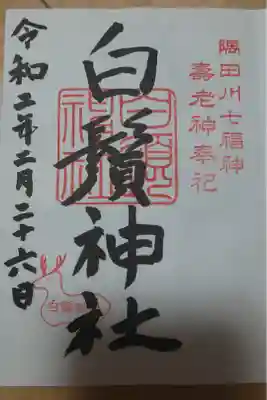 隅田川七福神
壽老神奉祀
白鬚神社
令和二年二月二十六日